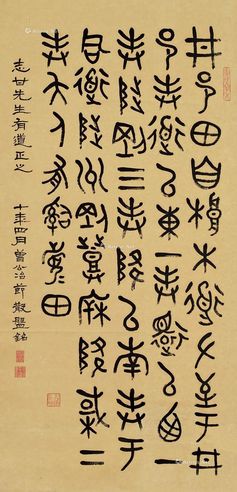 井邑田自桹木道左至于井
邑封道以東一封還以西一
封陟剛三封降以南封于
同道陟州剛登降棫二
封夨人有嗣眉田
十年四月曾公冶節散盤銘
志甘先生有道正之